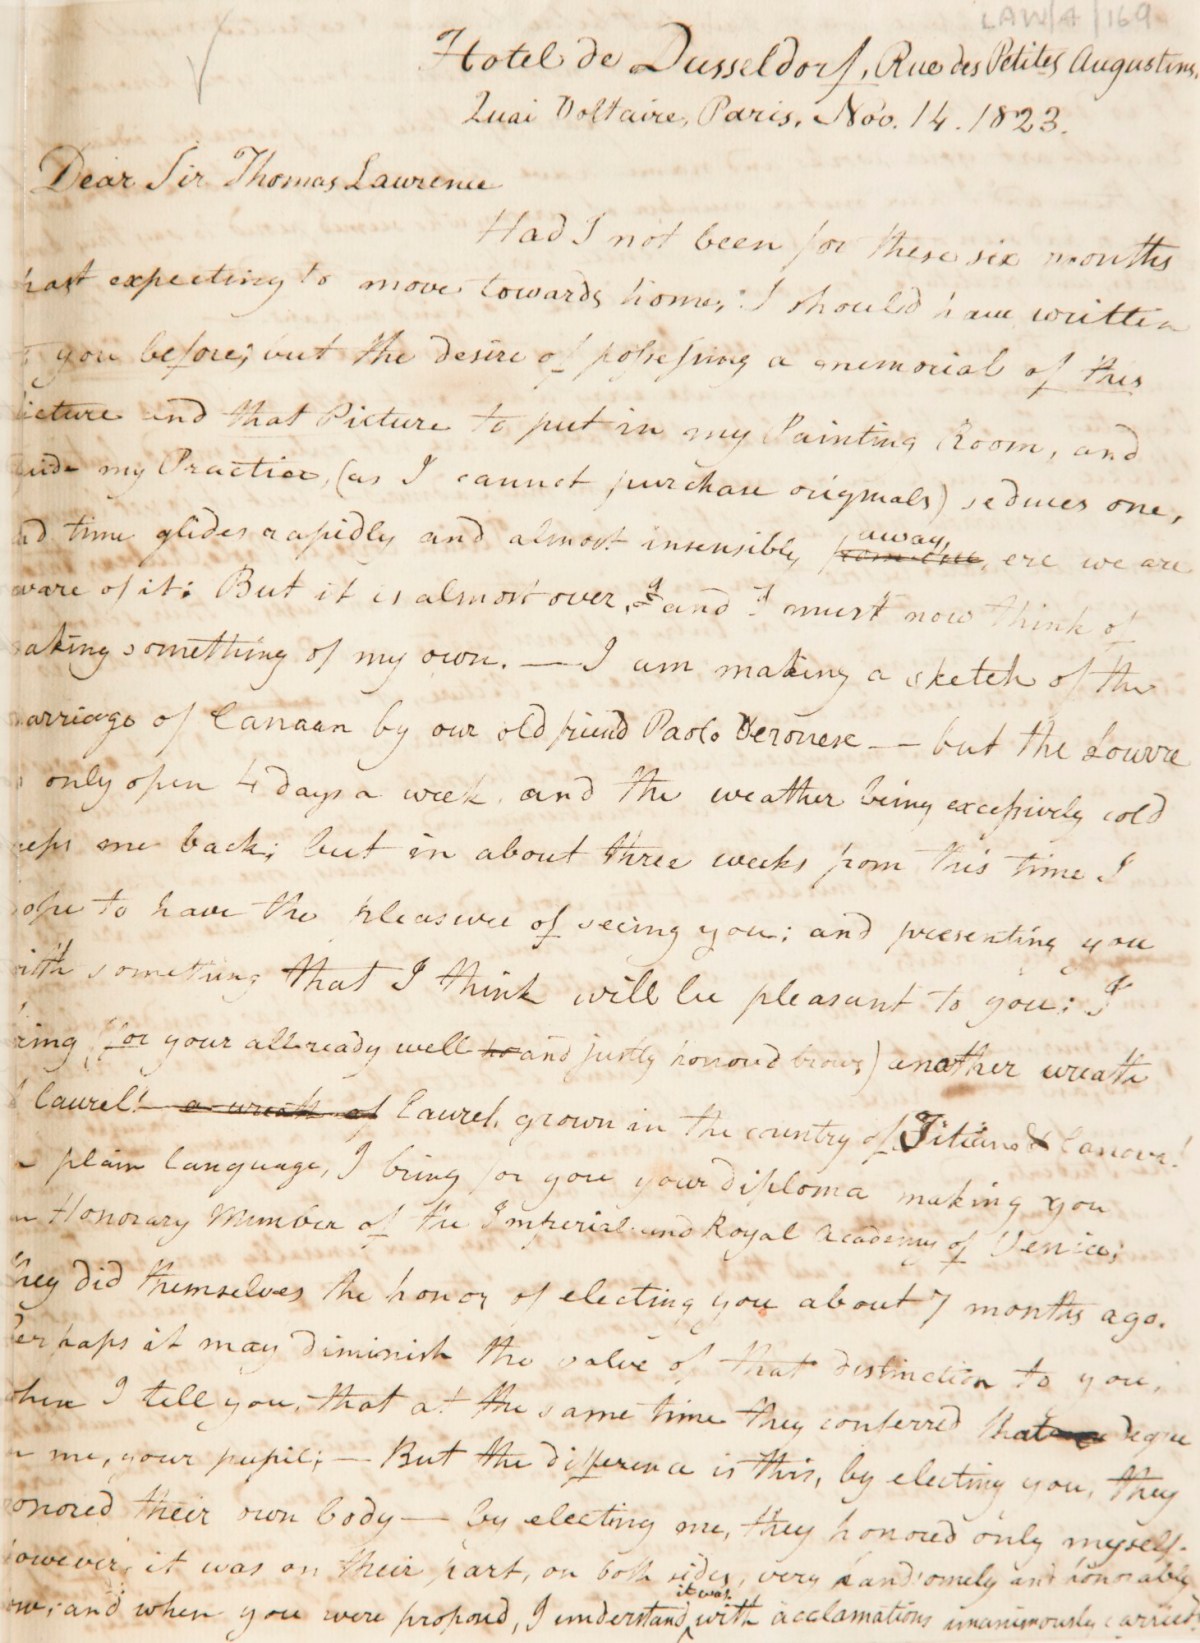 LAW/4/169
Hotel de Dusseldorf, Rue des Petites Augustins,
Quai Voltaire, Paris, Nov. 14. 1823.
Dear Sir Thomas Lawrence
Had I not been for these six months
past expecting to move towards home, I should have written
you before; but the desire of possessing a memorial of this
icture and that Picture to put in my Painting Room, and
my Practice, (as I cannot purchase originals) seduces one,
nd time glides rapidly and almost insensibly away, ere we are
ware of it: But it is almost over, and I must now think of
aking something of my own. — I am making a sketch of the
arriage of Canaan by our old friend Paolo Veronese — but the Louvre
only open 4 days a week, and the weather being excessively cold
eeps me back; but in about three weeks from this time I
ope to have the pleasure of seeing you: and presenting you
ith something that I think will be pleasant to you: I
ring (for your allready well ho and justly honour'd brows) another wreath
laurel! a wreath of laurel, grown in the country of Titian & Canova!
plain language, I bring for you your diploma making you
n Honorary Member of the Imperial and Royal Academy of Venice;
hey did themselves the honor of electing you about 7 months ago.
erhaps it may diminish the value of that distinction to you,
when I tell you, that at the same time they conferred that degree
n me, your pupil; — But the difference is this, by electing you, they
onored their own body — by electing me, they honored only myself.
owever, it was on their part, on both sides, very handsomely and honorably
ow; and when you were propos'd, I understand it was with acclamations unanimously carried